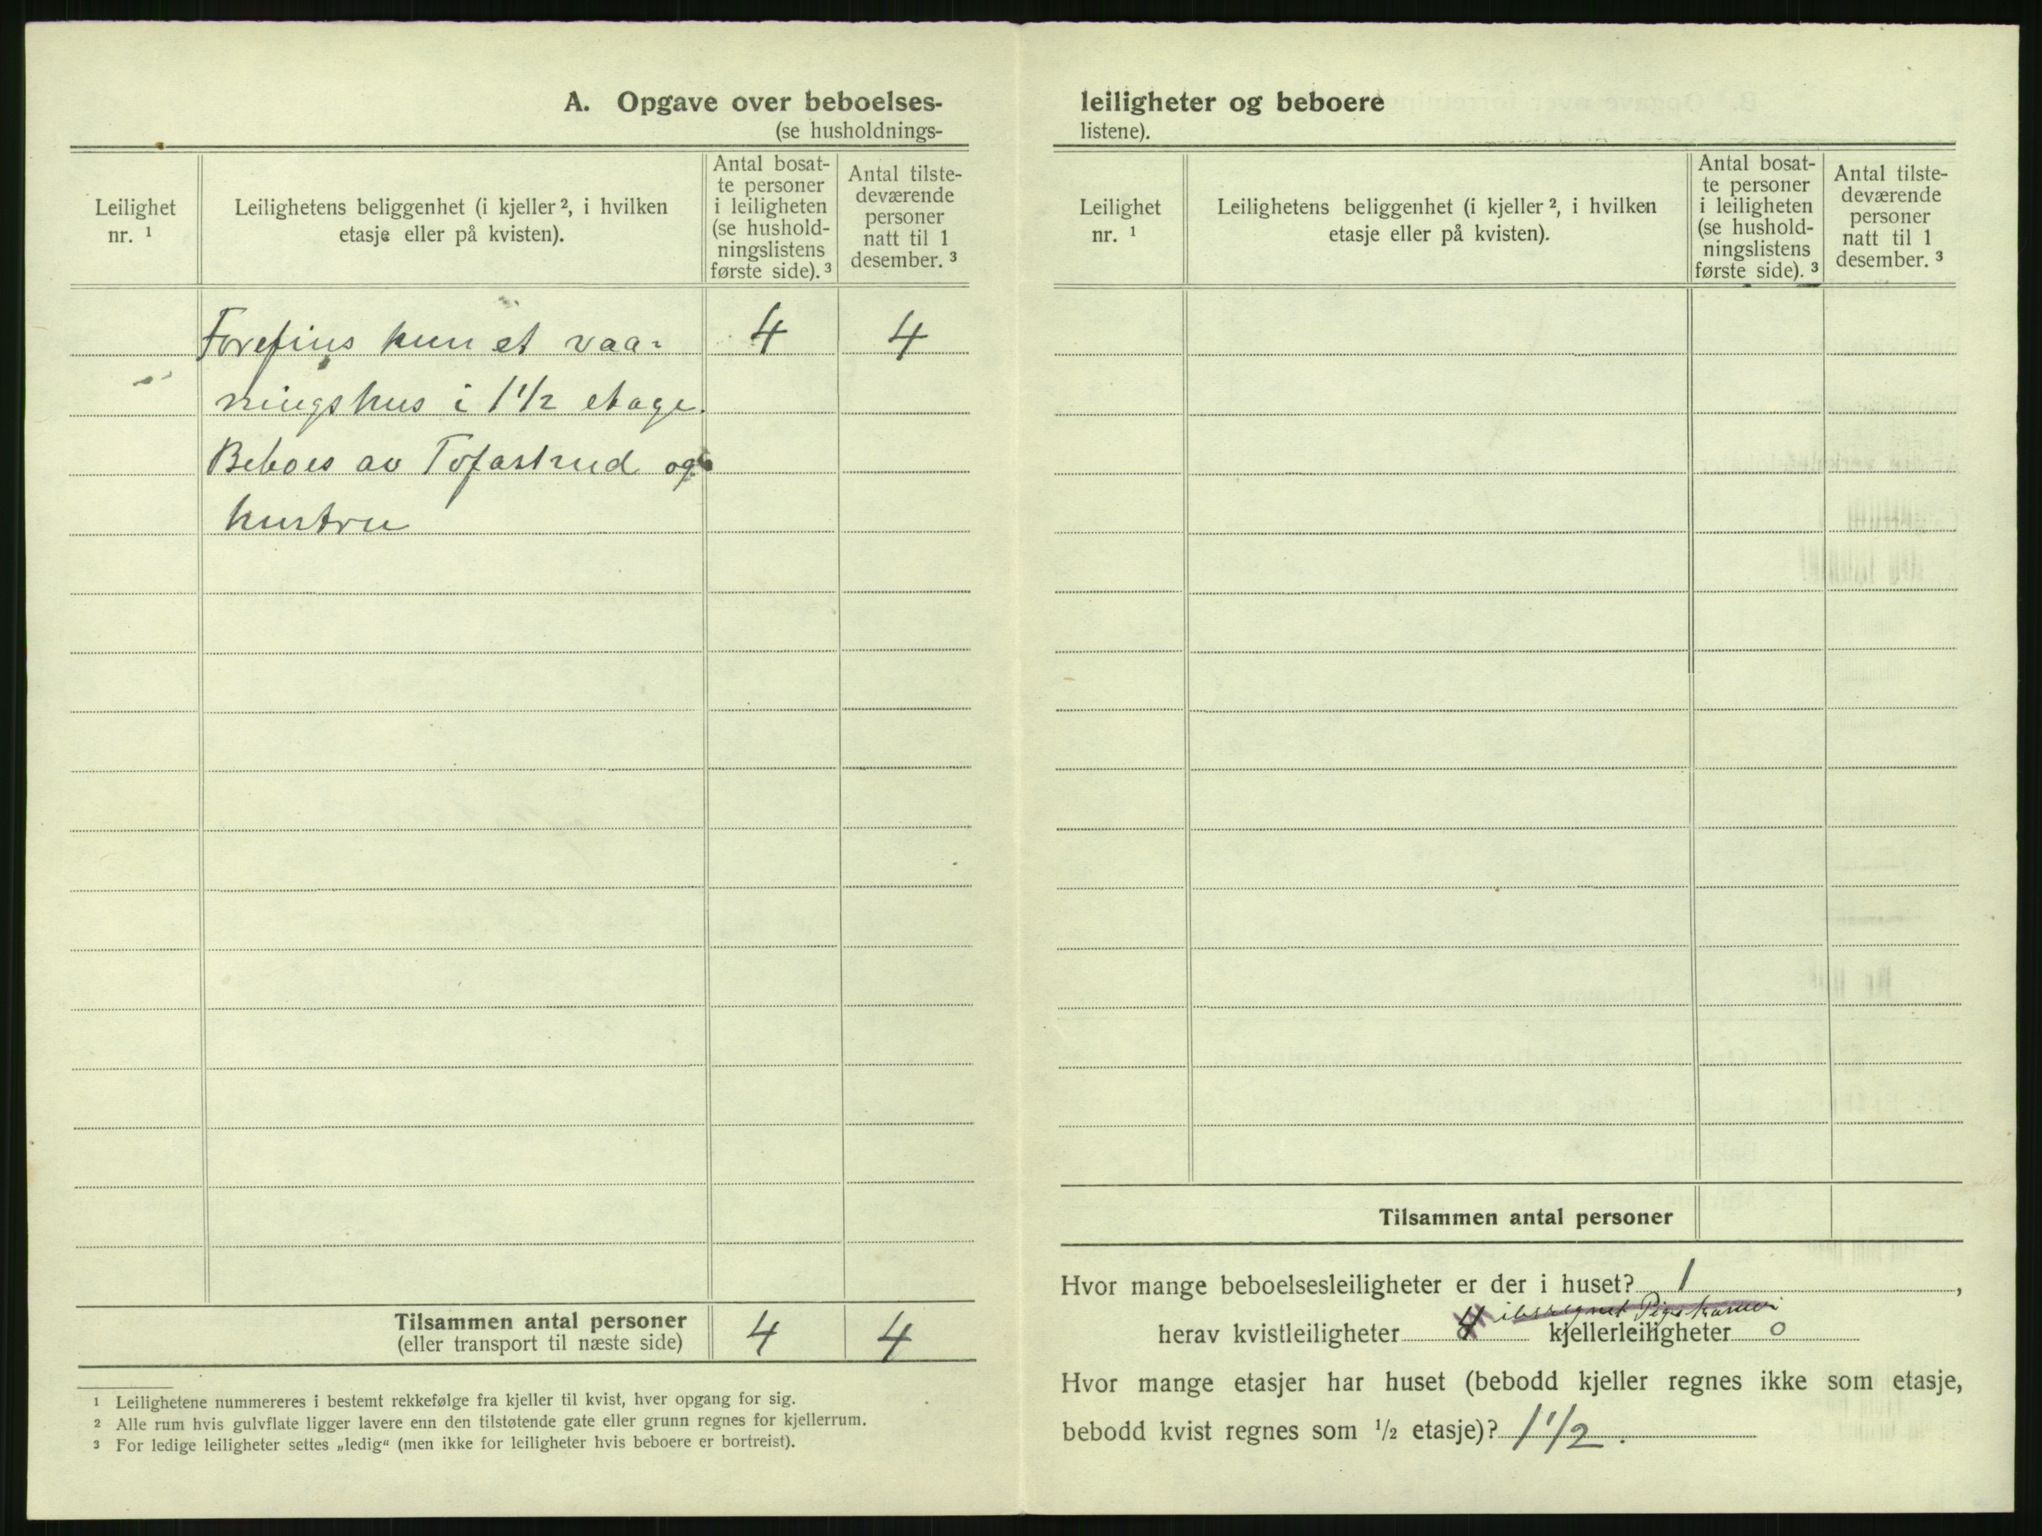 A. Opgave over beboelses-
(se husholdnings-
Leilighet nr. ¹
Leilighetens beliggenhet (i kjeller ², i hvilken etasje eller på kvisten).
Antal bosat-
te personer
i leiligheten
(se hushold-
ningslistens
første side). ³
Antal tilste-
deværende
personer
natt til 1
desember. ³
Forefins kun et vaa- 4 4
ningshus i 1 1/2 etage.
Beboes av Tofastrud og
hustru
Tilsammen antal personer 4 4
(eller transport til næste side)
¹ Leilighetene nummereres i bestemt rekkefølge fra kjeller til kvist, hver opgang for sig.
² Alle rum hvis gulvflate ligger lavere enn den tilstøtende gate eller grunn regnes for kjellerrum.
³ For ledige leiligheter settes „ledig“ (men ikke for leiligheter hvis beboere er bortreist).
leiligheter og beboere
listene).
Leilighet nr. ¹
Leilighetens beliggenhet (i kjeller ², i hvilken etasje eller på kvisten).
Antal bosat-
te personer
i leiligheten
(se hushold-
ningslistens
første side). ³
Antal tilste-
deværende
personer
natt til 1
desember. ³
Tilsammen antal personer
Hvor mange beboelsesleiligheter er der i huset? 1,
herav kvistleiligheter kjellerleiligheter 0
Hvor mange etasjer har huset (bebodd kjeller regnes ikke som etasje,
bebodd kvist regnes som 1/2 etasje)? 1 1/2.